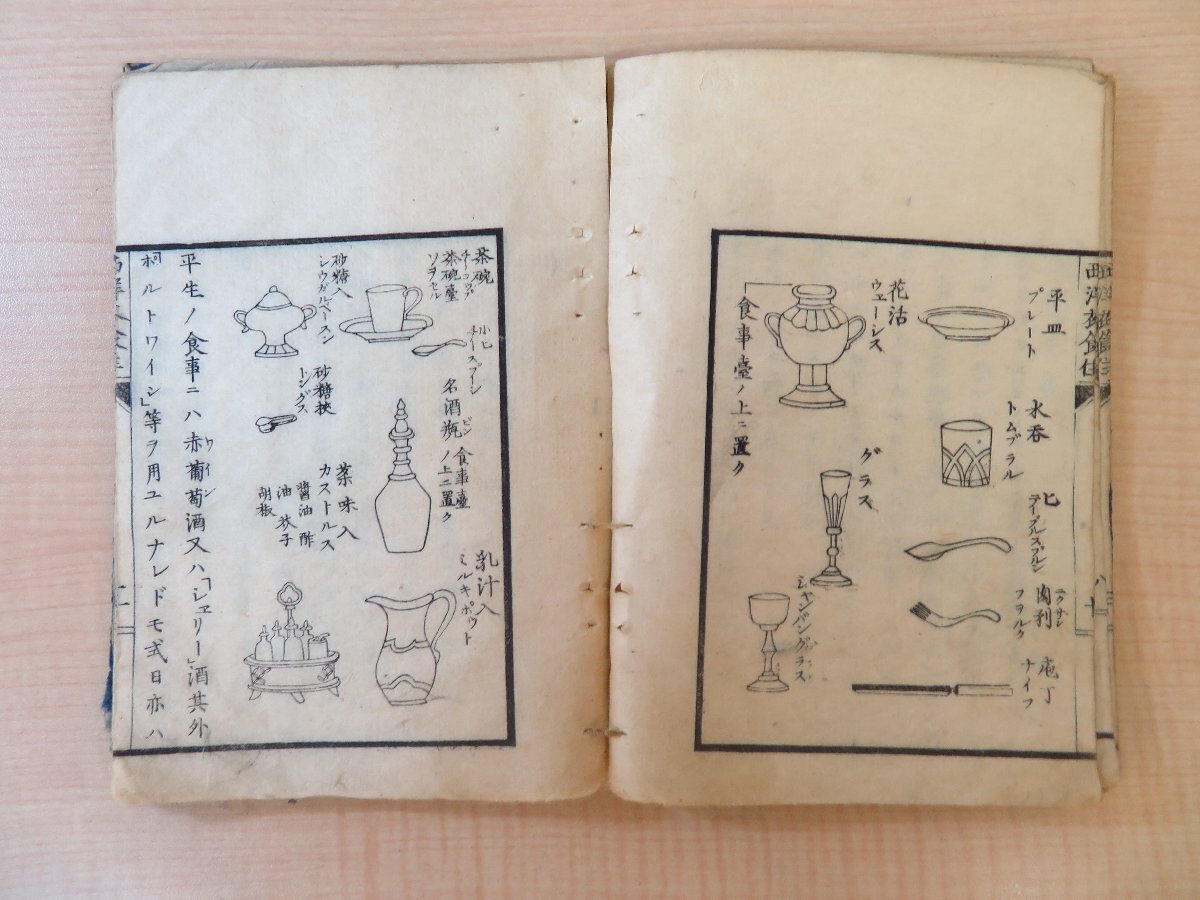 西洋衣食住
平皿
プレート
水呑
トムブラル
匕
テイブルスプルン
肉刺
ニクサシ
フヲルク
庖丁
ナイフ
花活
ウェーシス
グラス
シャンパングラス
食事臺ノ上ニ置ク
茶碗
チーコップ
茶碗臺
ソヲセル
小匕
チースプーン
名酒瓶
ビン
食事臺
ノ上ニ置ク
乳汁入
ミルキポウト
砂糖入
シウガルベースン
砂糖挾
トングス
薬味入
カストルス
醬油 酢
油 芥子
胡椒
平生ノ食事ニハ赤葡萄酒又ハ「シェリー」酒其外
ワイン
ポルトワイン」等ヲ用ユルナレドモ式日亦ハ